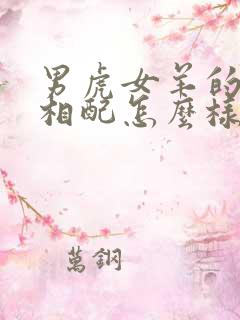 男虎女羊的
相配怎麼樣
萬鋼